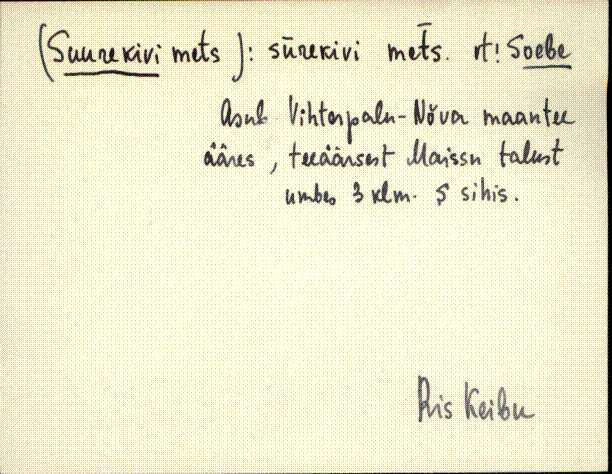 (Suurekivi mets): sūrekivi met̄s. rt! Soebe
Asub Vihterpalu-Nõva maantee
ääres, teeäärsest Maissu talust
umbes 3 klm. S sihis.
Ris Keibu